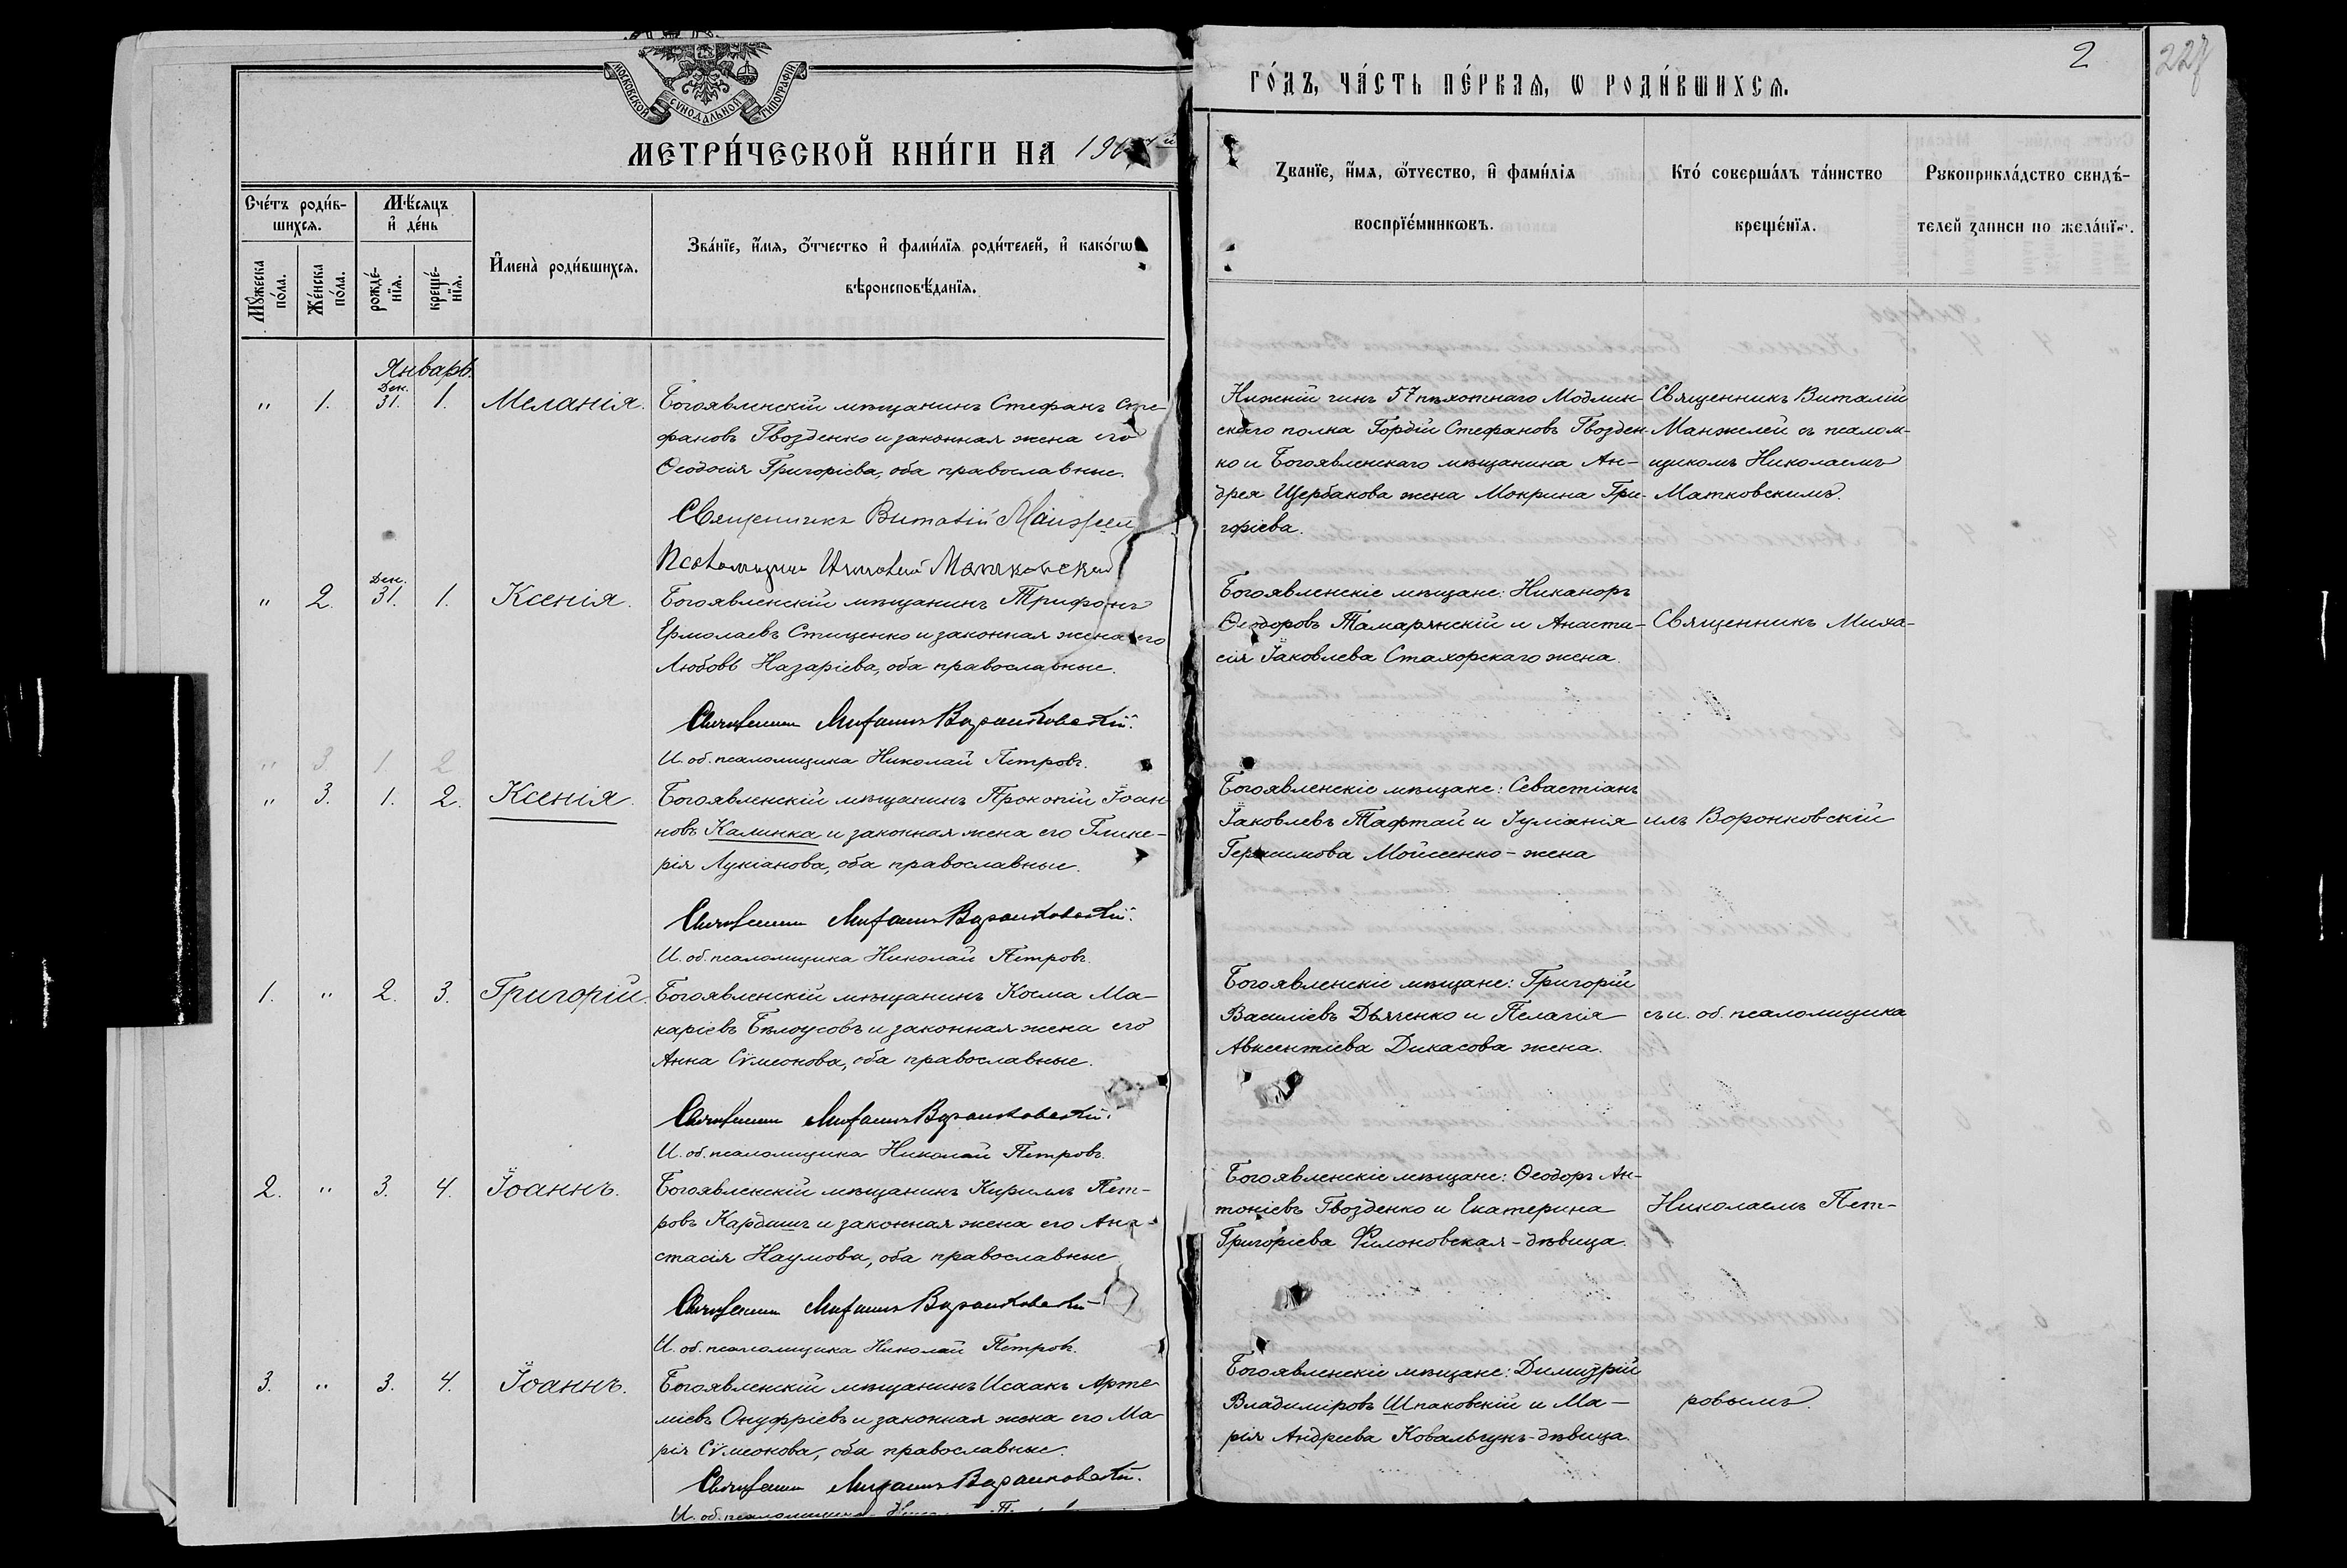 МОСКОВСКОЙ СУНОДАЛЬНОЙ ТИПОГРАФІИ
МЕТРИ́ЧЕСКОЙ КНИ́ГИ НА
Сче́тъ роди́в-
шихсѧ.
Мѣ́сѧцъ
и҆ де́нь
Мꙋ́жеска
по́ла.
Же́нска
по́ла.
рожде́-
нїѧ.
креще́-
нїѧ.
И҆мена̀ роди́вшихсѧ.
Зва́нїе, и҆́мѧ, ѻ҆́тчество и҆ фами́лїѧ роди́телей, и҆ како́гѡ
вѣроисповѣ́данїѧ.
Январь.
" 1. Дек. 31. 1. Меланія. Богоявленскій мѣщанинъ Стефанъ Сте-
фановъ Гвозденко и законная жена его
Ѳеодосія Григоріева, оба православные.
Священникъ Виталій Манжелей
Псаломщикъ Николай Матковскій
" 2. Дек. 31. 1. Ксенія. Богоявленскій мѣщанинъ Трифонъ
Ермолаевъ Стищенко и законная жена его
Любовь Назаріева, оба православные.
Священникъ Михаилъ Воронковскій.
И. об. псаломщика Николай Петровъ.
" 3. 1. 2
" 3. 1. 2. Ксенія. Богоявленскій мѣщанинъ Прокопій Іоан-
новъ Калинка и законная жена его Глике-
рія Лукіанова, оба православные.
Священникъ Михаилъ Воронковскій.
И. об. псаломщика Николай Петровъ.
1. " 2. 3. Григорій. Богоявленскій мѣщанинъ Косма Ма-
каріевъ Бѣлоусовъ и законная жена его
Анна Сѵмеонова, оба православные.
Священникъ Михаилъ Воронковскій.
И. об. псаломщика Николай Петровъ.
2. " 3. 4. Іоаннъ. Богоявленскій мѣщанинъ Кириллъ Пет-
ровъ Кардашъ и законная жена его Ана-
стасія Наумова, оба православные
Священникъ Михаилъ Воронковскій
И. об. псаломщика Николай Петровъ.
3. " 3. 4. Іоаннъ. Богоявленскій мѣщанинъ Исаакъ Арте-
міевъ Онуфріевъ и законная жена его Ма-
рія Сѵмеонова, оба православные.
Священникъ Михаилъ Воронковскій.
И. об. псаломщика
2
227
ГО́ДЪ, ЧА́СТЬ ПЕ́РВАѦ, Ѡ РОДИ́ВШИХСѦ.
Зва́нїе, и҆́мѧ, ѻ҆́тчество, и҆ фами́лїѧ
воспрїе́мникѡвъ.
Кто́ соверша́лъ та́инство
креще́нїѧ.
Рꙋкоприкла́дство свидѣ́-
телей записи по жела́нїю.
Нижній чинъ 57 пѣхотнаго Модлин-
скаго полка Гордій Стефановъ Гвозден-
ко и Богоявленскаго мѣщанина Ан-
дрея Щербакова жена Мокрина Гри-
горіева.
Священникъ Виталій
Манжелей съ псалом-
щикомъ Николаемъ
Матковскимъ.
Богоявленскіе мѣщане: Никаноръ
Ѳеодоровъ Тамарянскій и Анаста-
сія Іаковлева Стахорскаго жена.
Священникъ Миха-
Богоявленскіе мѣщане: Севастіанъ
Іаковлевъ Тафтай и Іуліанія
Герасимова Мойсеенко - жена
илъ Воронковскій
Богоявленскіе мѣщане: Григорій
Василіевъ Дьяченко и Пелагія
Авксентіева Дикасова жена.
съ и. об. псаломщика
Богоявленскіе мѣщане: Ѳеодоръ Ан-
тоніевъ Гвозденко и Екатерина
Григоріева Филоновская - дѣвица.
Николаемъ Пет-
Богоявленскіе мѣщане: Димитрій
Владиміровъ Шпаковскій и Ма-
рія Андреева Ковальчукъ - дѣвица.
ровымъ.